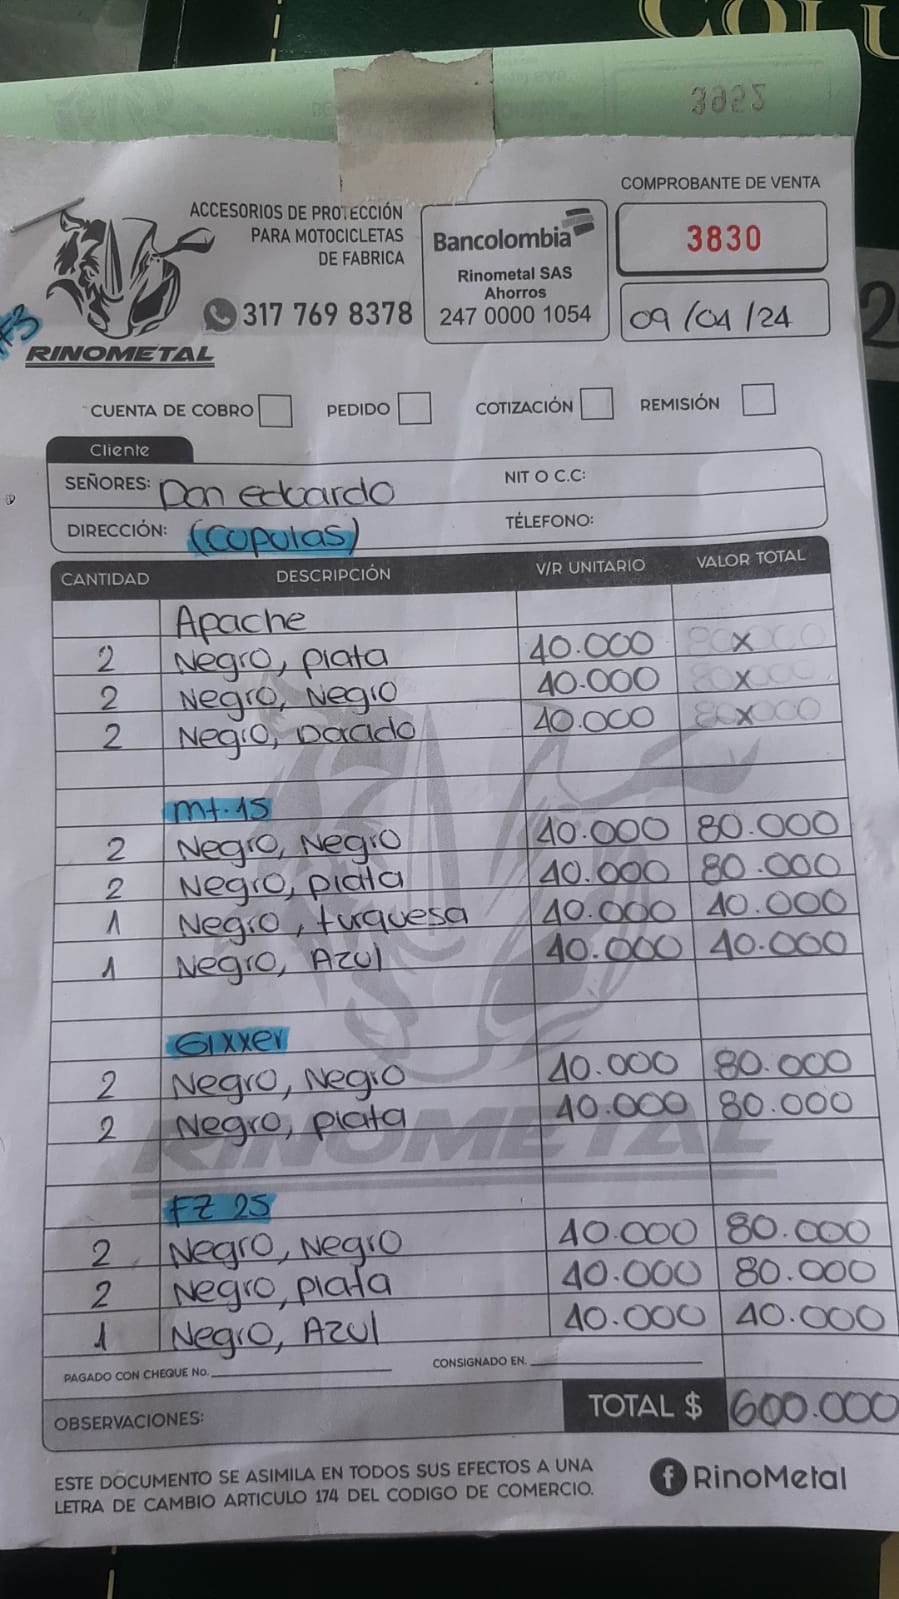 COLU
3952
COMPROBANTE DE VENTA
ACCESORIOS DE PROTECCIÓN
PARA MOTOCICLETAS
DE FABRICA
317 769 8378
RINOMETAL
Bancolombia
Rinometal SAS
Ahorros
247 0000 1054
3830
09/04/24
CUENTA DE COBRO PEDIDO COTIZACIÓN REMISIÓN
Cliente
SEÑORES: Don eduardo NIT O C.C:
DIRECCIÓN: (Cupulas) TÉLEFONO:
CANTIDAD DESCRIPCIÓN V/R UNITARIO VALOR TOTAL
Apache
2 Negro, plata 40.000 x
2 Negro, Negro 40.000 x
2 Negro, Dorado 40.000 x
mt.15
2 Negro, Negro 40.000 80.000
2 Negro, plata 40.000 80.000
1 Negro, turquesa 40.000 40.000
1 Negro, Azul 40.000 40.000
Gixxer
2 Negro, Negro 40.000 80.000
2 Negro, plata 40.000 80.000
RINOMETAL
FZ 25
2 Negro, Negro 40.000 80.000
2 Negro, plata 40.000 80.000
1 Negro, Azul 40.000 40.000
PAGADO CON CHEQUE No. CONSIGNADO EN.
OBSERVACIONES: TOTAL $ 600.000
ESTE DOCUMENTO SE ASIMILA EN TODOS SUS EFECTOS A UNA
LETRA DE CAMBIO ARTICULO 174 DEL CODIGO DE COMERCIO.
f RinoMetal